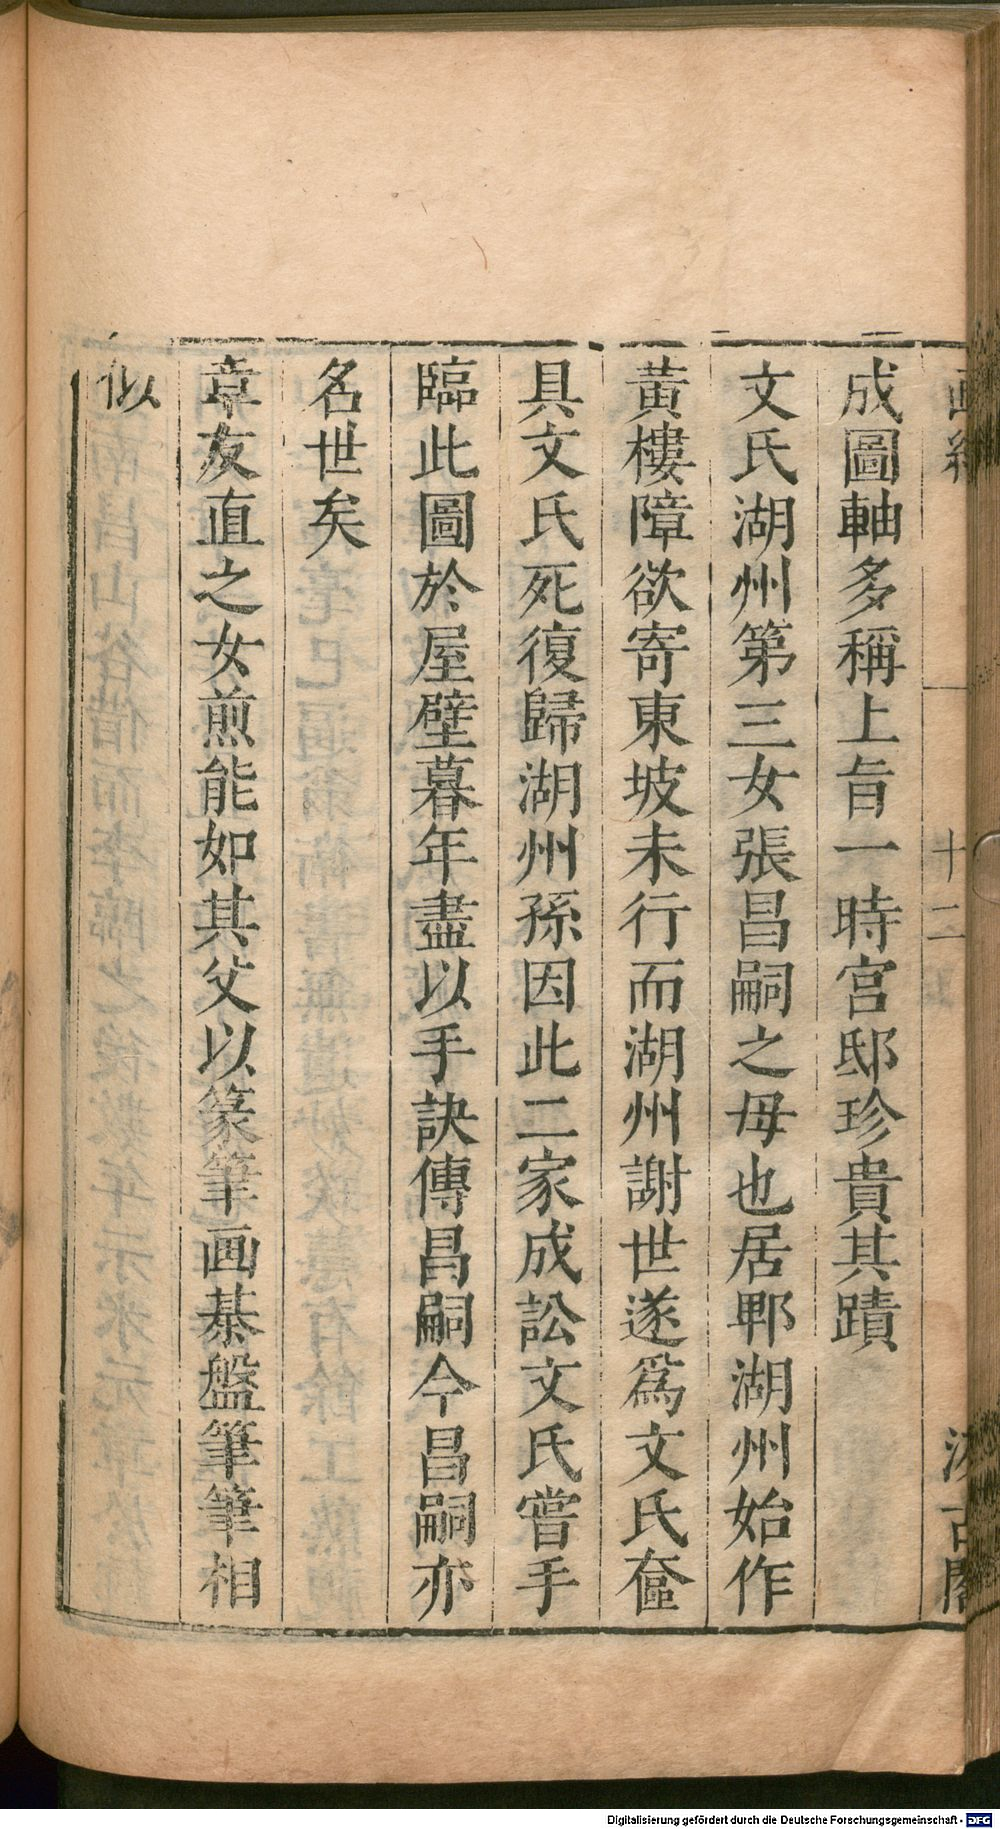 成圖軸多稱上旨一時宮邸珍貴其蹟
文氏湖州第三女張昌嗣之母也居郫湖州始作
黃樓障欲寄東坡未行而湖州謝世遂爲文氏奩
具文氏死復歸湖州孫因此二家成訟文氏嘗手
臨此圖於屋壁暮年盡以手訣傳昌嗣今昌嗣亦
名世矣
章友直之女煎能如其父以篆筆画棊盤筆筆相
似
十二
古閣
Digitalisierung gefördert durch die Deutsche Forschungsgemeinschaft - DFG